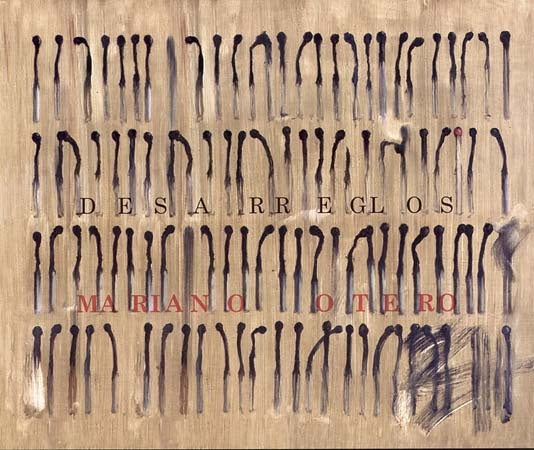 DESARREGLOS
MARIANO OTERO